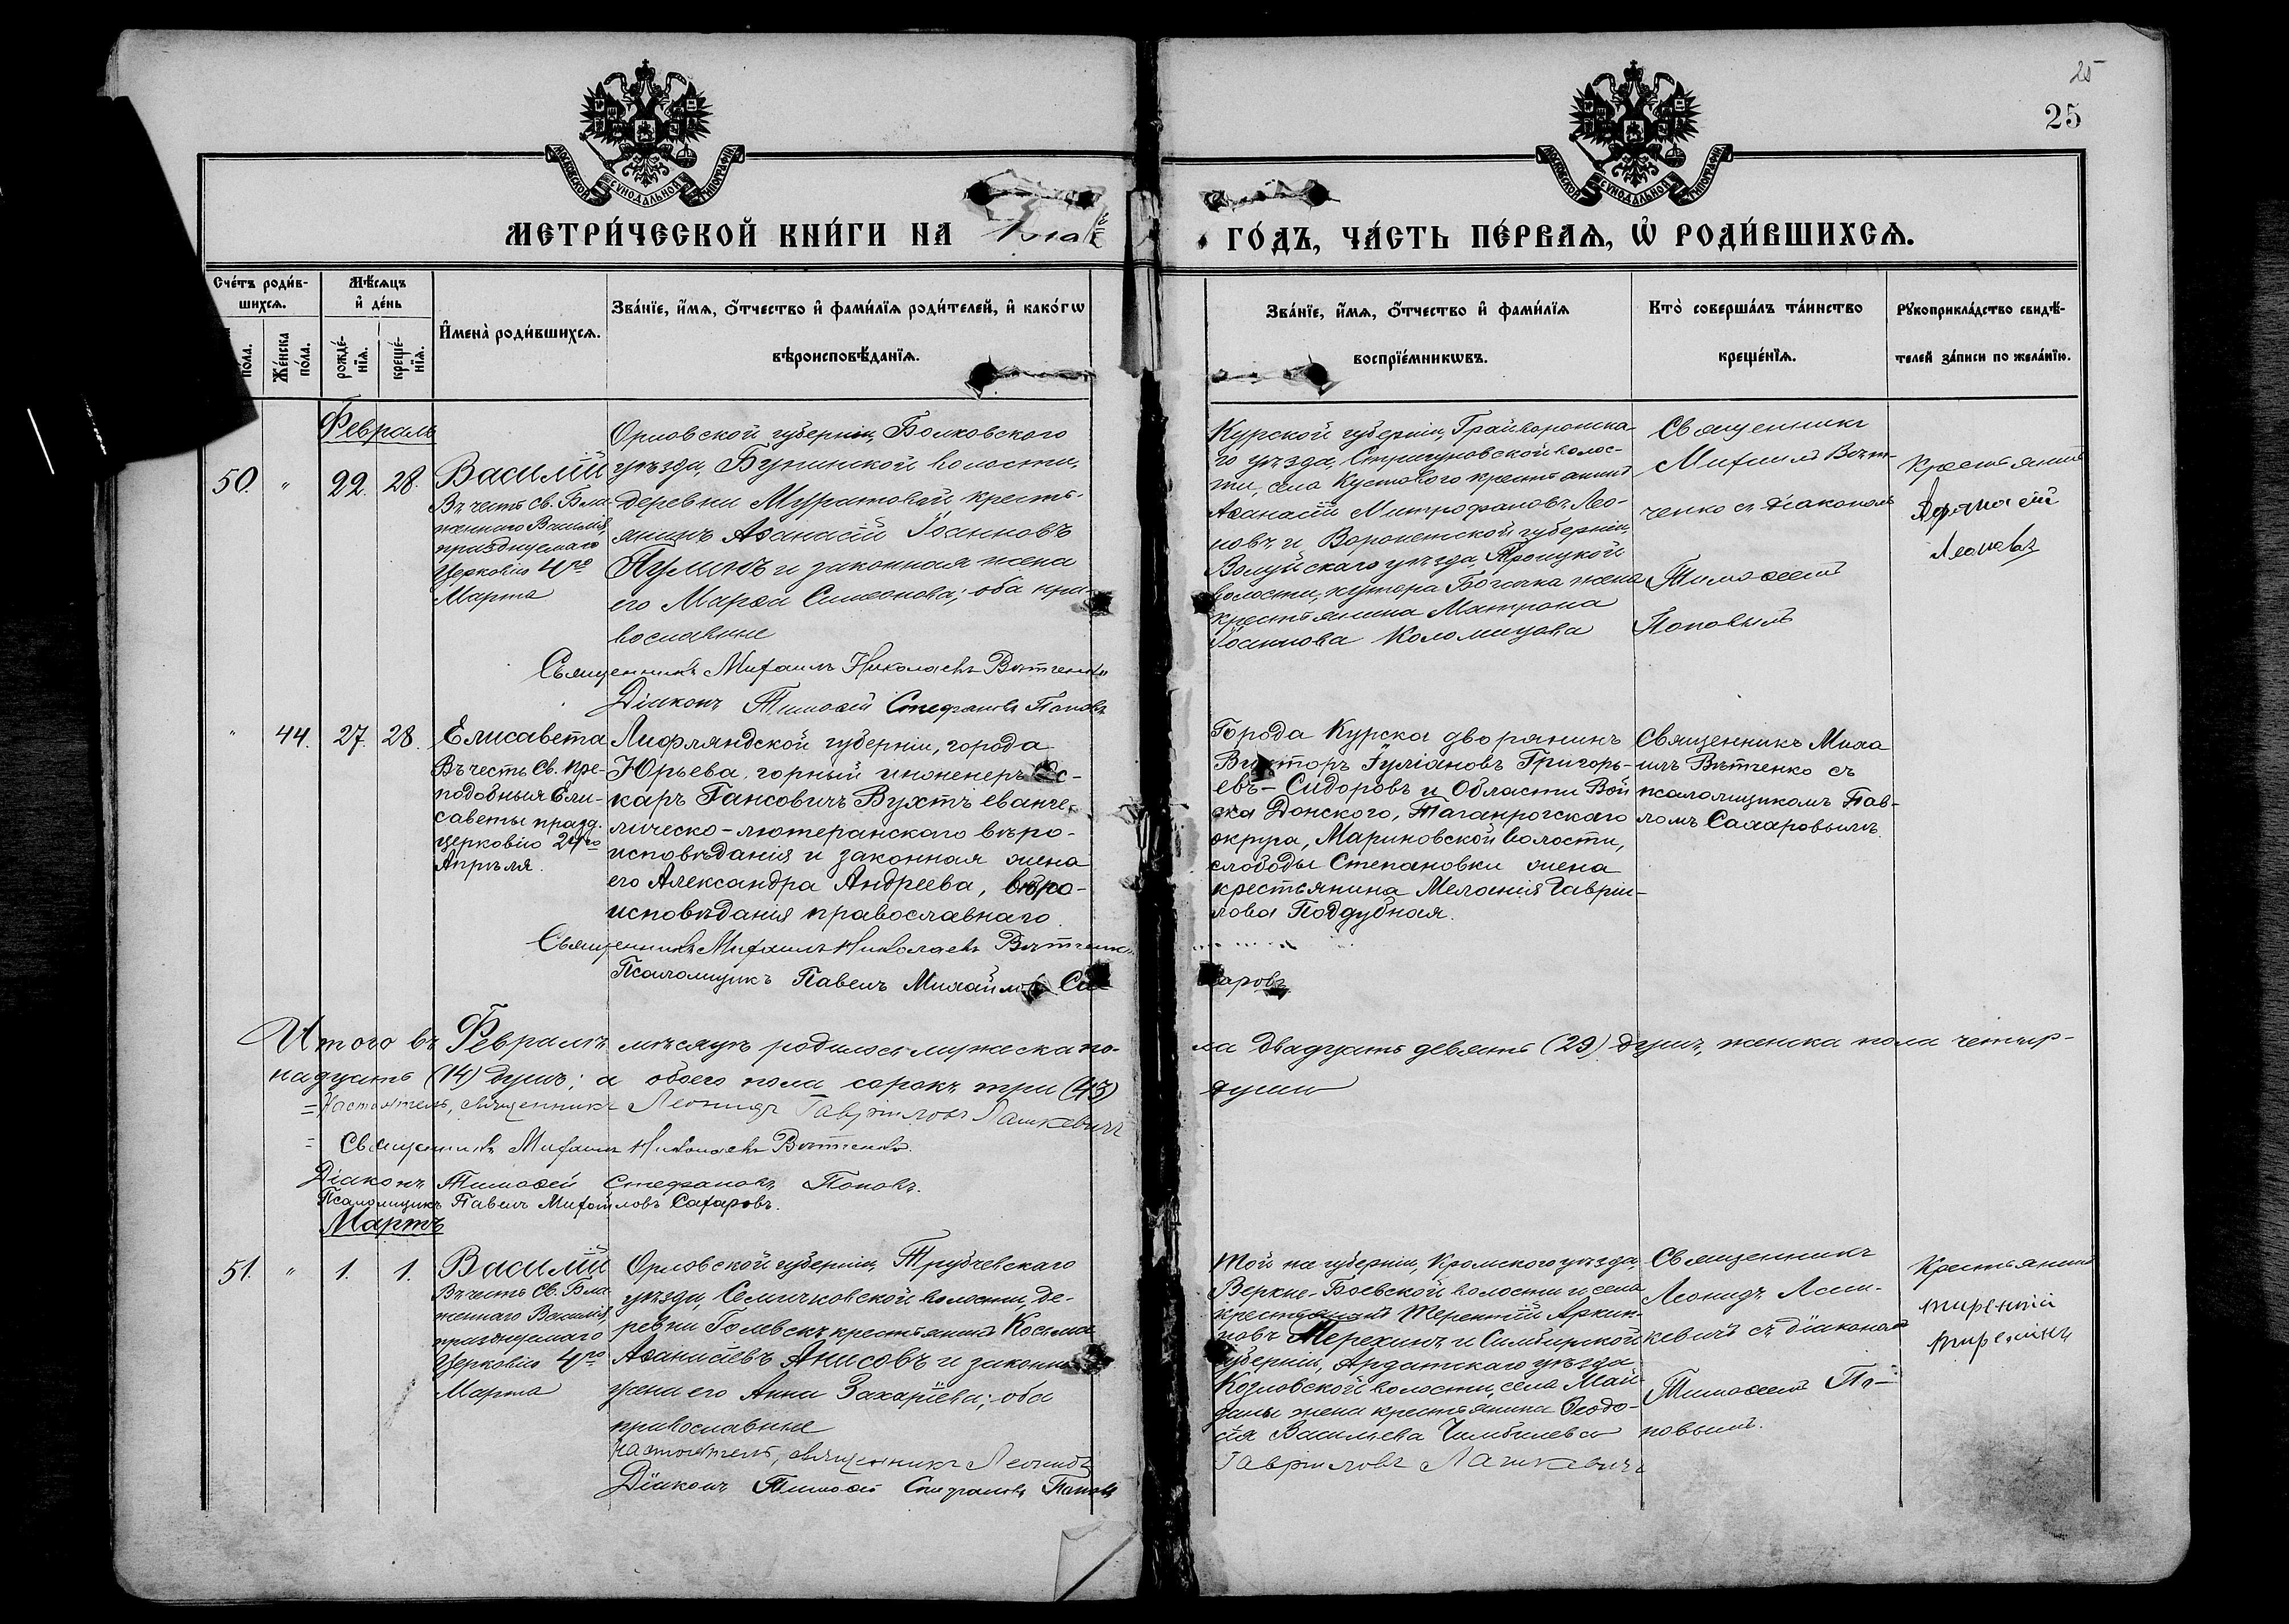 25
25
МОСКОВСКОЙ СѴНОДАЛЬНОЙ ТИПОГРАФІИ
МОСКОВСКОЙ СѴНОДАЛЬНОЙ ТИПОГРАФІИ
МЕТРИ́ЧЕСКОЙ КНИ́ГИ НА
ГО́ДЪ, ЧА́СТЬ ПЕ́РВАѦ, Ѡ҆ РОДИ́ВШИХСѦ.
Сче́тъ роди́в-
шихсѧ.
пола.
Же́нска
по́ла.
Мѣ́сѧцъ
и҆ де́нь
рожде́-
нїѧ.
креще́-
нїѧ.
И҆мена̀ роди́вшихсѧ.
Зва́нїе, и҆́мѧ, о҆́тчество и҆ фами́лїѧ роди́телей, и҆ како́гѡ
вѣроисповѣ́данїѧ.
Зва́нїе, и҆́мѧ, о҆́тчество и҆ фами́лїѧ
воспрїе́мникѡвъ.
Кто̀ соверша́лъ та́инство
креще́нїѧ.
Рꙋкоприкла́дство свидѣ́-
телей за́писи по жела́нїю.
Февраль
50. " 22. 28.
Василій
Въ честь Св. Бла-
женнаго Василія,
празднуемаго
Церковію 4го
Марта
Орловской губерніи, Болховского
уѣзда, Бунинской волости,
деревни Муратовой кресть-
янинъ Аѳанасій Іоанновъ
и законная жена
его Марѳа Симеонова; оба пра-
вославные
Священникъ Михаилъ Николаевъ Вѣтченко
Діаконъ Тимоѳей Стефановъ Поповъ
Курской губерніи, Грайворонска-
го уѣзда, Стригуновской волос-
ти, села Кустового крестьянинъ
Аѳанасій Митрофановъ Лео-
новъ и Воронежской губерніи,
Валуйскаго уѣзда, Троицкой
волости, хутора жена
крестьянина Матрона
Іоаннова Коломицова
Священникъ
Михаилъ Вѣт-
ченко съ діакономъ
Тимоѳеемъ
Поповымъ
Крестьянинъ
Афанасій
Леоновъ
" 44. 27. 28.
Елисавета
Въ честь Св. Пре-
подобныя Ели-
саветы празд.
церковію 24го
Апрѣля.
Лифляндской губерніи, города
Юрьева, горный инженеръ Ос-
каръ Гансовичъ Вухтъ еванге-
лическо-лютеранскаго вѣро-
исповѣданія и законная жена
его Александра Андреева, вѣро-
исповѣданія православнаго.
Священникъ Михаилъ Николаевъ Вѣтченко
Псаломщикъ Павелъ Михайловъ Са-
харовъ
Города Курска дворянинъ
Викторъ Іуліановъ Григорь-
евъ-Сидоровъ и Области Вой
ска Донского, Таганрогскаго
округа, Мариновской волости,
слободы Степановки жена
крестьянина Меланія Гаврии-
лова Поддубная.
Священникъ Миха
илъ Вѣтченко съ
псаломщикомъ Пав-
ломъ Сахаровымъ.
Итого въ Февралѣ мѣсяцѣ родилось мужеска по-
ла двадцать девять (29) душъ, женска пола четыр-
надцать (14) душъ; а обоего пола сорокъ три (43)
души
= Настоятель, священникъ Леонидъ Гавриловъ Лашкевичъ
= Священникъ Михаилъ Николаевъ Вѣтченко.
Діаконъ Тимоѳей Стефановъ Поповъ.
Псаломщикъ Павелъ Михайловъ Сахаровъ.
Мартъ
51. " 1. 1.
Василій
Въ честь Св. Бла
женнаго Василія,
празднуемаго
Церковію 4го
Марта
Орловской губерніи, Трубчевскаго
уѣзда, Семячковской волости, де-
ревни крестьянинъ Косьма
Аѳанасіевъ Анисовъ и законная
жена его Анна Захаріева; оба
православные
Настоятель, священникъ Леонидъ
Гавриловъ Лашкевичъ
Діаконъ Тимоѳей Стефановъ Поповъ
Той же губерніи, Кромского уѣзда,
Верхне-Боевской волости и села
крестьянинъ Терентій Архип-
повъ и Симбирской
губерніи, Ардатскаго уѣзда
Козловской волости, села Май-
даны жена крестьянина Ѳеодо-
сія Васильева
Священникъ
Леонидъ Лаш-
кевичъ съ діакономъ
Тимоѳеемъ По-
повымъ.
Крестьянинъ